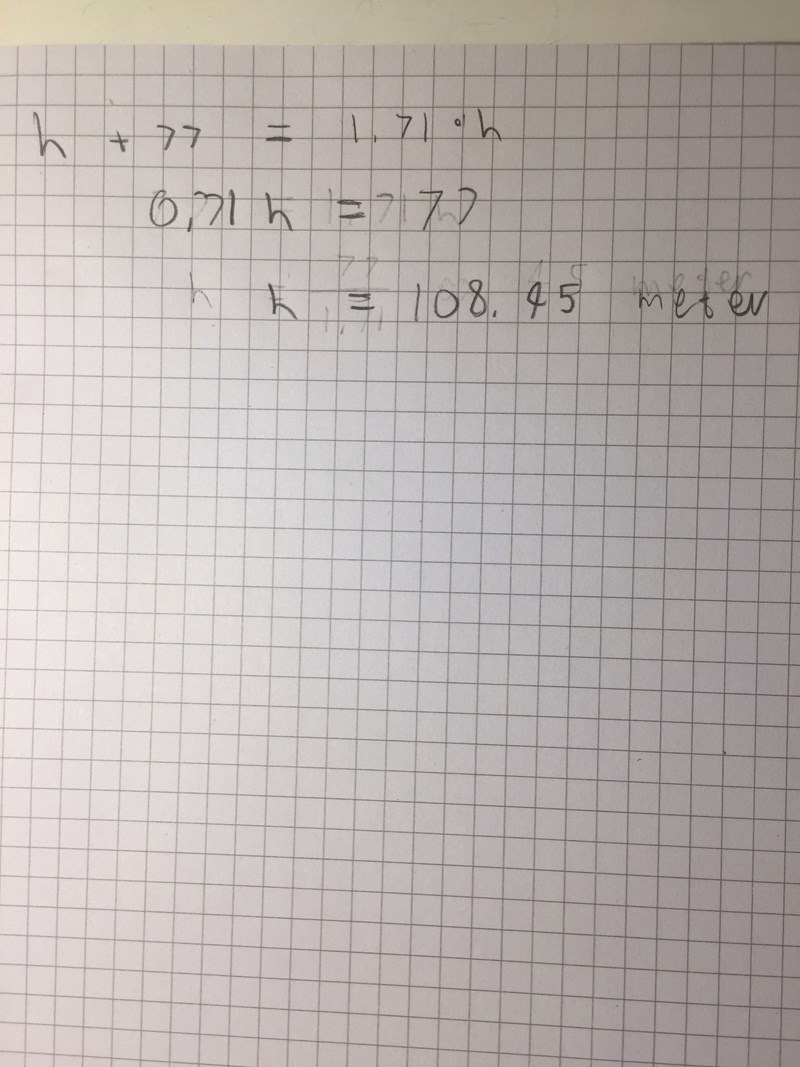 h + 77 = 1.71 · h
0,71 h = 77
h = 108.45 meter